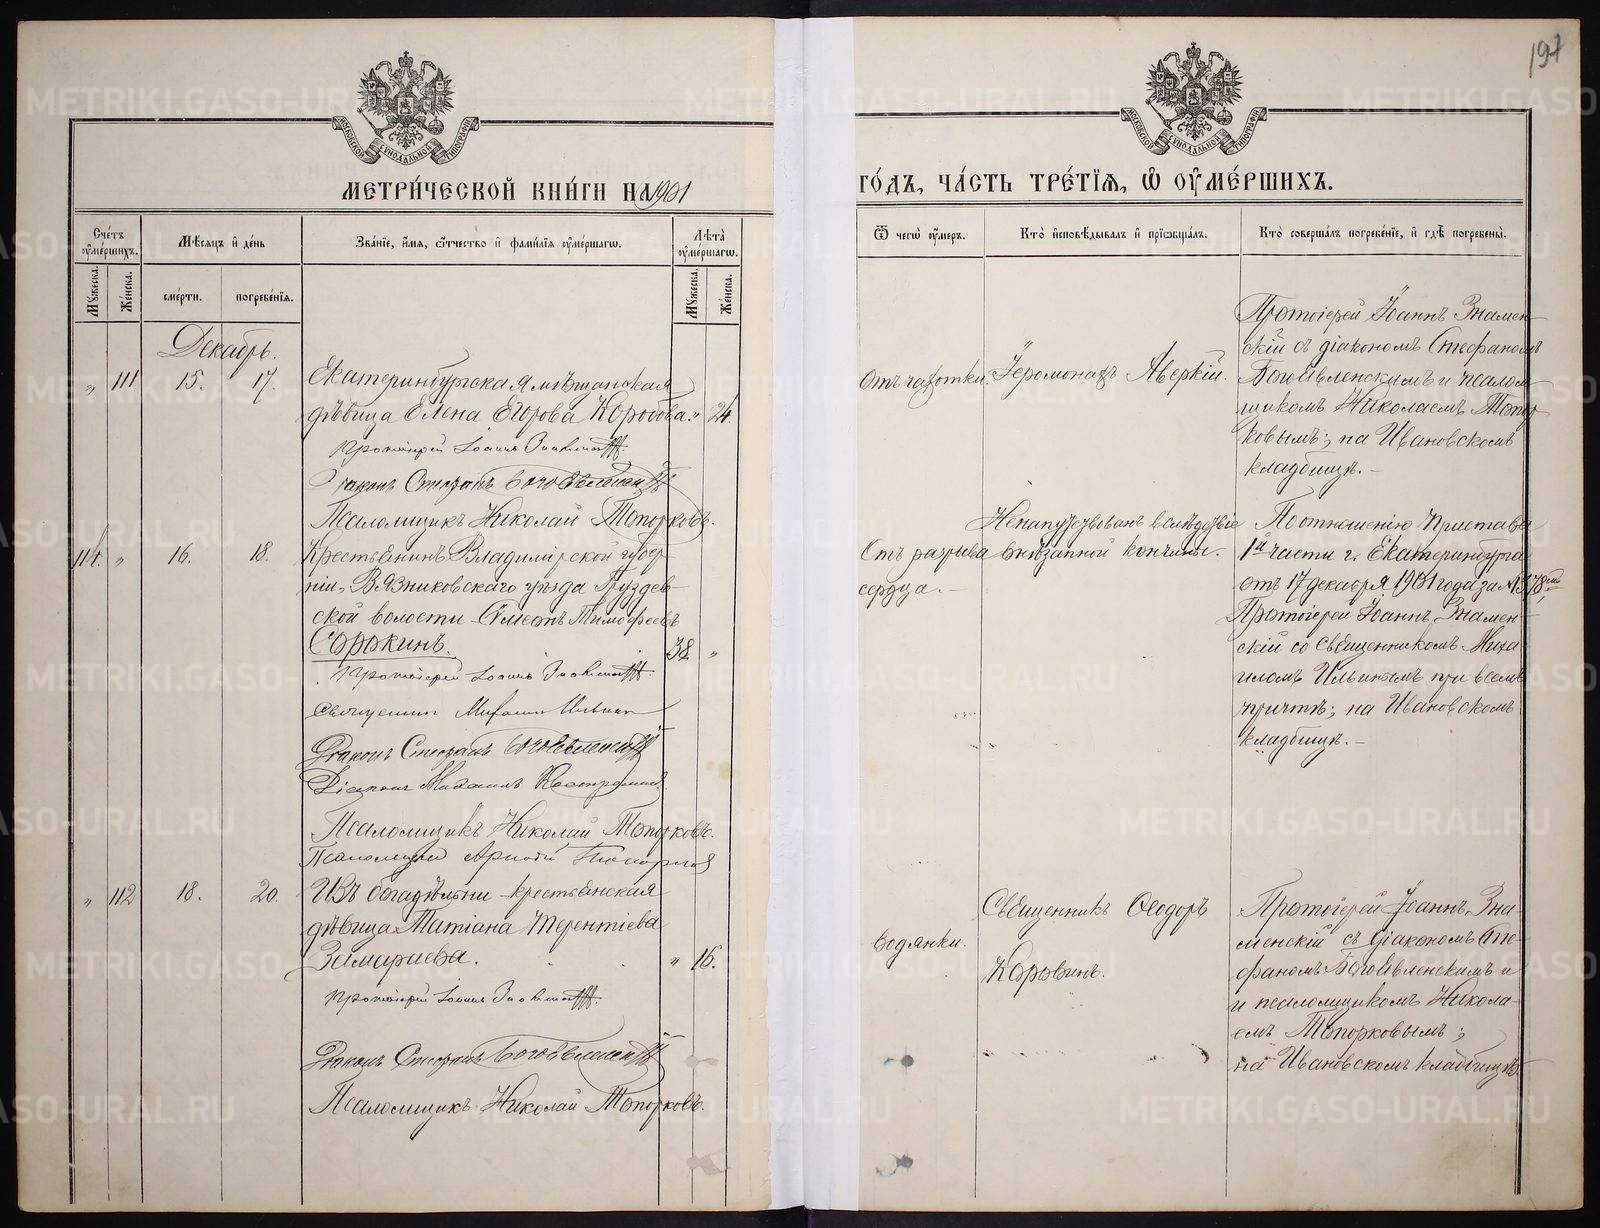 197
МЕТРИ́ЧЕСКОЙ КНИ́ГИ НА 1901
ГО́ДЪ, ЧА́СТЬ ТРЕ́ТЇѦ, Ѽ ОУ҆МЕ́РШИХЪ.
Сче́тъ оу҆ме́ршихъ.
Мѣ́сяцъ и҆ де́нь
Зва́нїе, и҆́мѧ, ѻ҆́тчество и҆ фами́лїѧ оу҆ме́ршагѡ.
Лѣ́та оу҆ме́ршагѡ.
Ѿ чегѡ̀ оу҆́меръ.
Кто̀ и҆сповѣ́дывалъ и҆ прїѡбща́лъ.
Кто̀ соверша́лъ погребе́нїе, и҆ гдѣ̀ погребены̀.
Му́жеска.
Же́нска.
сме́рти.
погребе́нїѧ.
Му́жеска.
Же́нска.
Декабрь.
" 111 15. 17.
Екатеринбургская мѣщанская
дѣвица Елена Егорова Коробова. " 24.
Протоіерей Іоаннъ Знаменскій
Діаконъ Стефанъ Богоявленскій
Псаломщикъ Николай Топорковъ.
Отъ чахотки.
Іеромонахъ Аверкій.
Протоіерей Іоаннъ Знамен-
скій съ діакономъ Стефаномъ
Богоявленскимъ и псалом-
щикомъ Николаемъ Топор-
ковымъ; на Ивановскомъ
кладбищѣ.-
114. " 16. 18.
Крестьянинъ Владимірской губер-
ніи, Вязниковскаго уѣзда Груздев-
ской волости Симеонъ Тимофеевъ
Сорокинъ. 38. "
Протоіерей Іоаннъ Знаменскій
Священникъ Михаилъ Ильинъ
Діаконъ Стефанъ Богоявленскій
Діаконъ Михаилъ
Псаломщикъ Николай Топорковъ.
Псаломщикъ Топорковъ
Отъ разрыва
сердца.-
Ненапутствованъ вслѣдствіе
внезапной кончины.
По отношенію Пристава
1й части г. Екатеринбурга
отъ 17 декабря 1901 года за №
Протоіерей Іоаннъ Знамен-
скій со Священникомъ Миха-
иломъ Ильинымъ при всемъ
причтѣ; на Ивановскомъ
кладбищѣ.-
" 112 18. 20.
Изъ богадѣльни крестьянская
дѣвица Татіана Терентіева
Замараева. " 16.
Протоіерей Іоаннъ Знаменскій
Діаконъ Стефанъ Богоявленскій
Псаломщикъ Николай Топорковъ.
Водянки.
Священникъ Ѳеодоръ
Коровинъ.
Протоіерей Іоаннъ Зна-
менскій съ діакономъ Сте-
фаномъ Богоявленскимъ и
и псаломщикомъ Никола-
емъ Топорковымъ;
на Ивановскомъ кладбищѣ.
METRIKI.GASO-URAL.RU